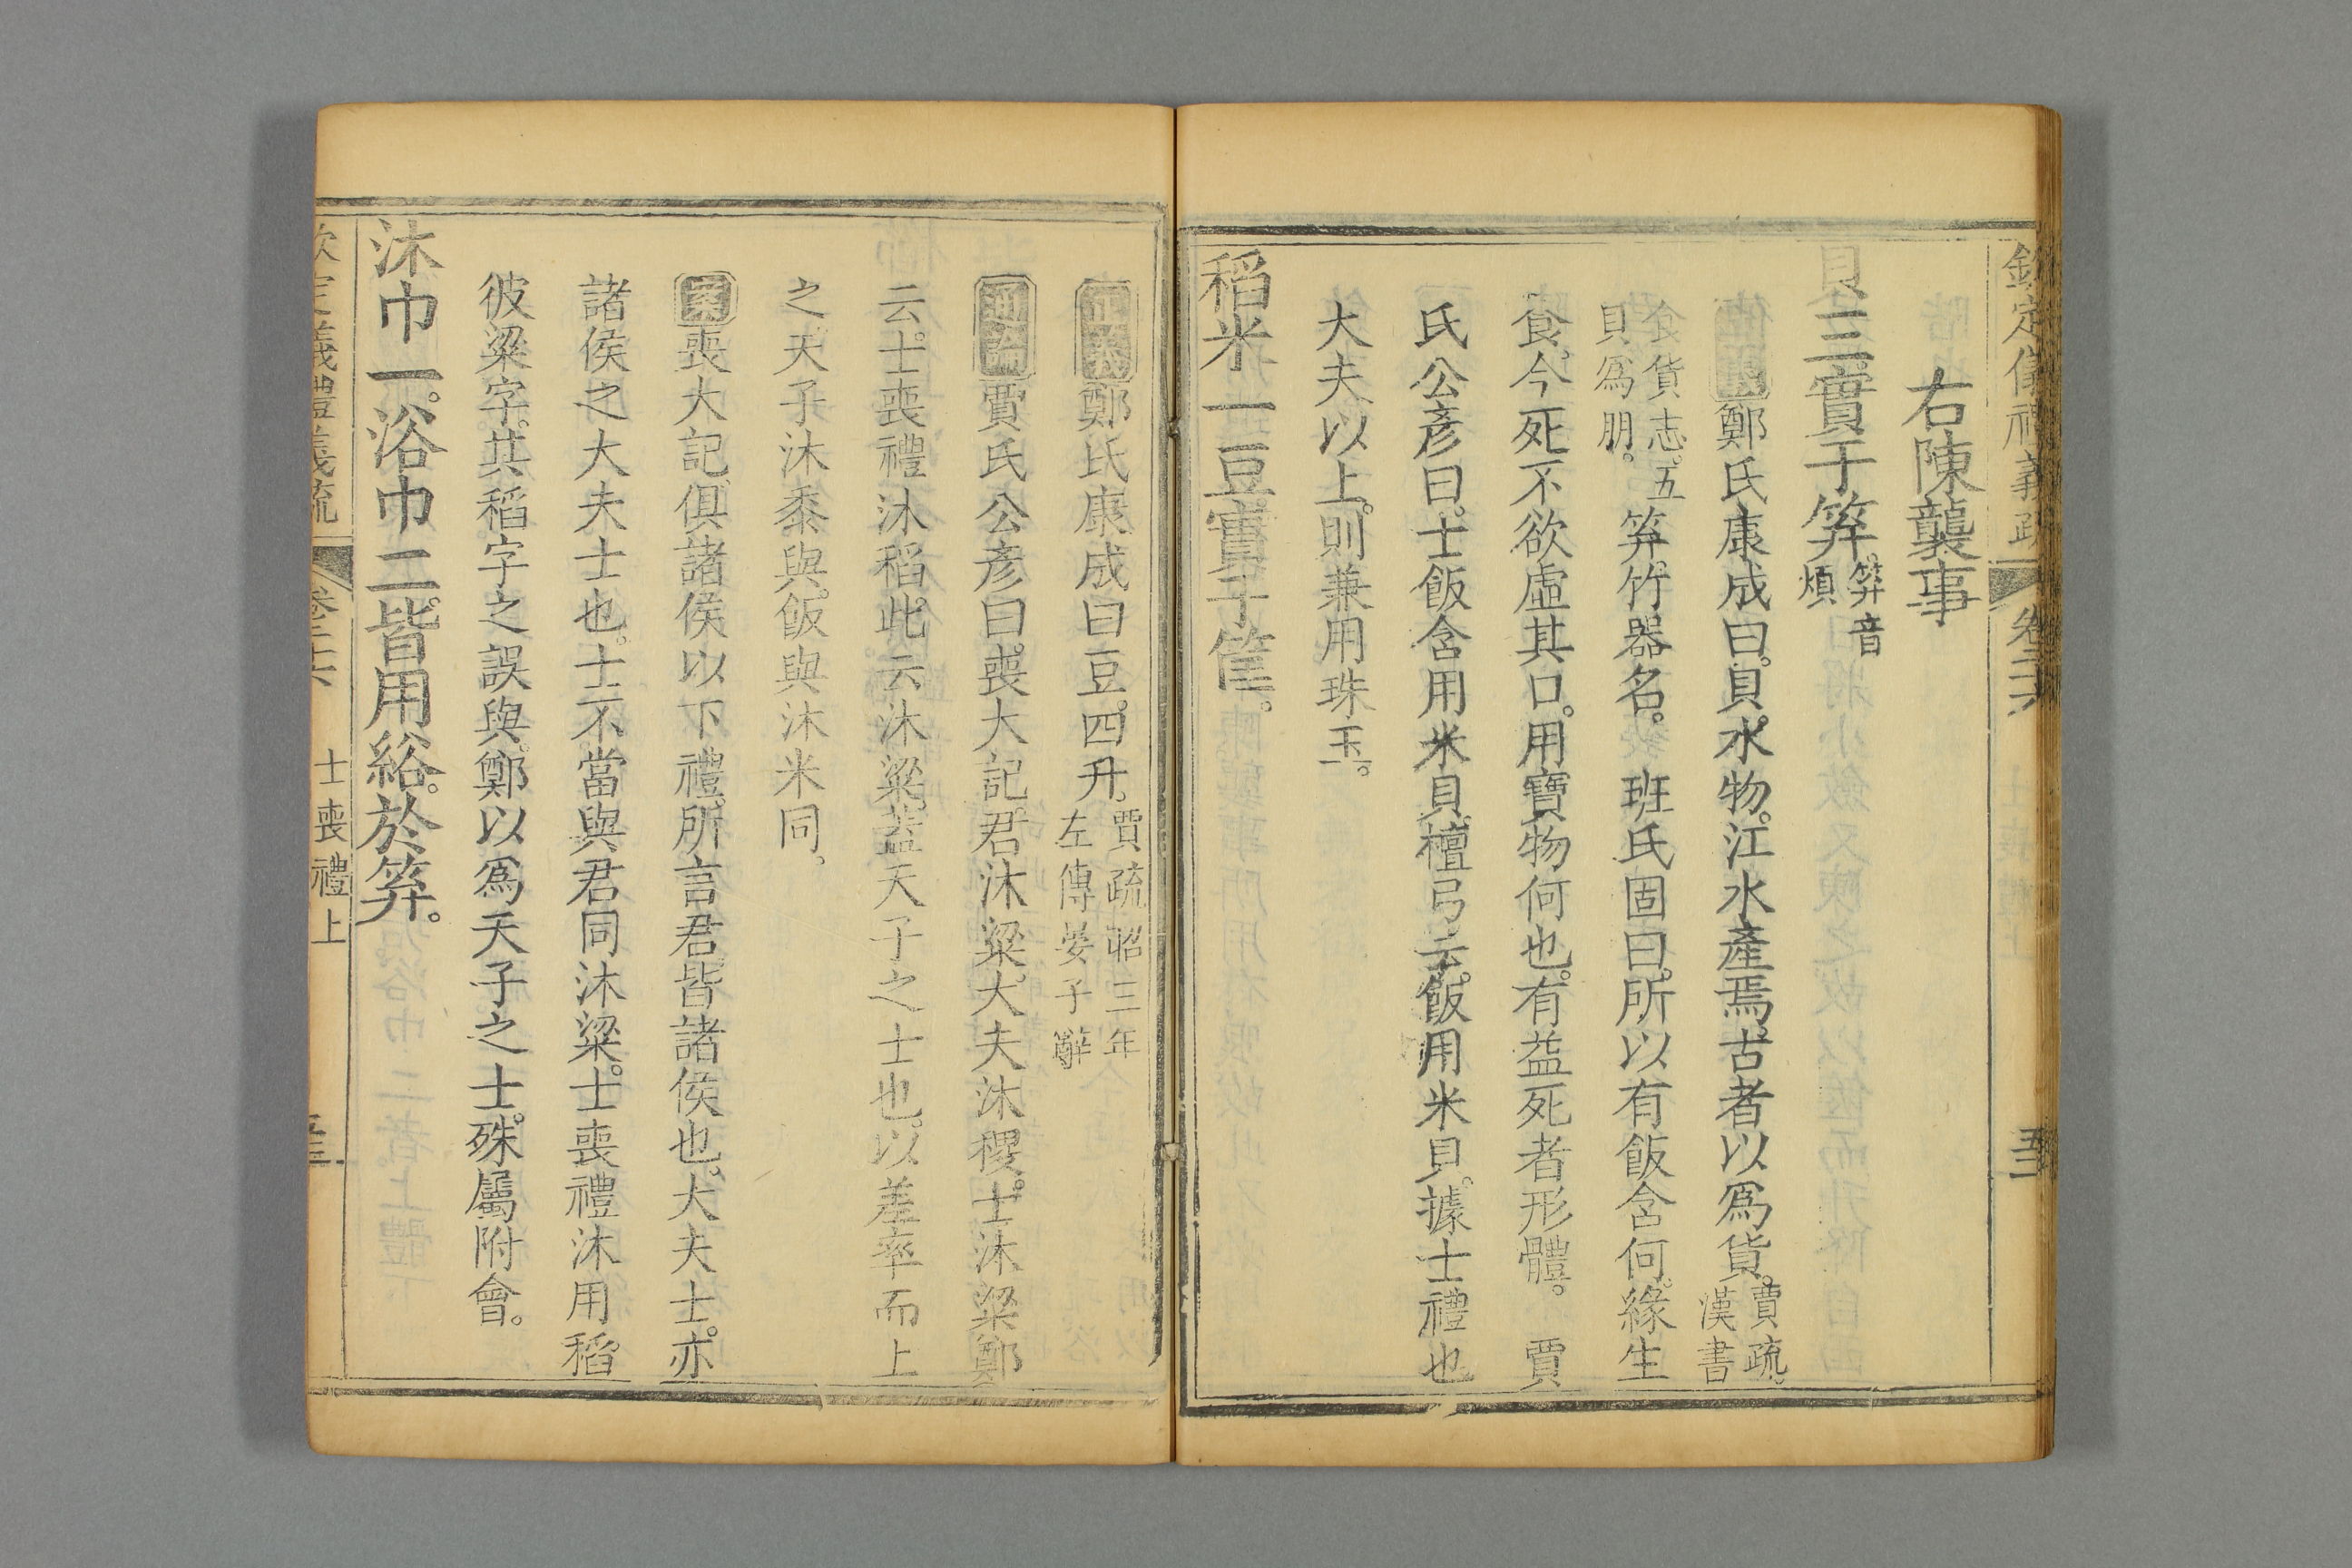 欽定儀禮義疏 卷二六 五三
右陳襲事
貝三實于笲。笲音煩
正義鄭氏康成曰。貝水物。江水產焉。古者以爲貨。賈疏。漢書
食貨志。五貝爲朋。笲。竹器名。 班氏固曰。所以有飯含何。緣生
食。今死不欲虛其口。用寶物何也。有益死者形體。 賈
氏公彥曰。士飯含用米貝。檀弓云。飯用米貝。據士禮也
大夫以上。則兼用珠玉。
稻米一豆實于筐。
正義鄭氏康成曰豆。四升。賈疏昭三年左傳晏子辭
通論賈氏公彥曰。喪大記。君沐粱。大夫沐稷。士沐粱鄭
云。士喪禮沐稻。此云沐粱。蓋天子之士也。以差率而上
之天子沐黍與。飯與沐米同。
案喪大記。俱諸侯以下禮。所言君。皆諸侯也。大夫士。亦
諸侯之大夫士也。士不當與君同沐粱。士喪禮沐用稻
彼粱字。共稻字之誤與。鄭以爲天子之士。殊屬附會。
沐巾一。浴巾二。皆用綌。於笲。
欽定儀禮義疏 卷二六 士喪禮上 五三